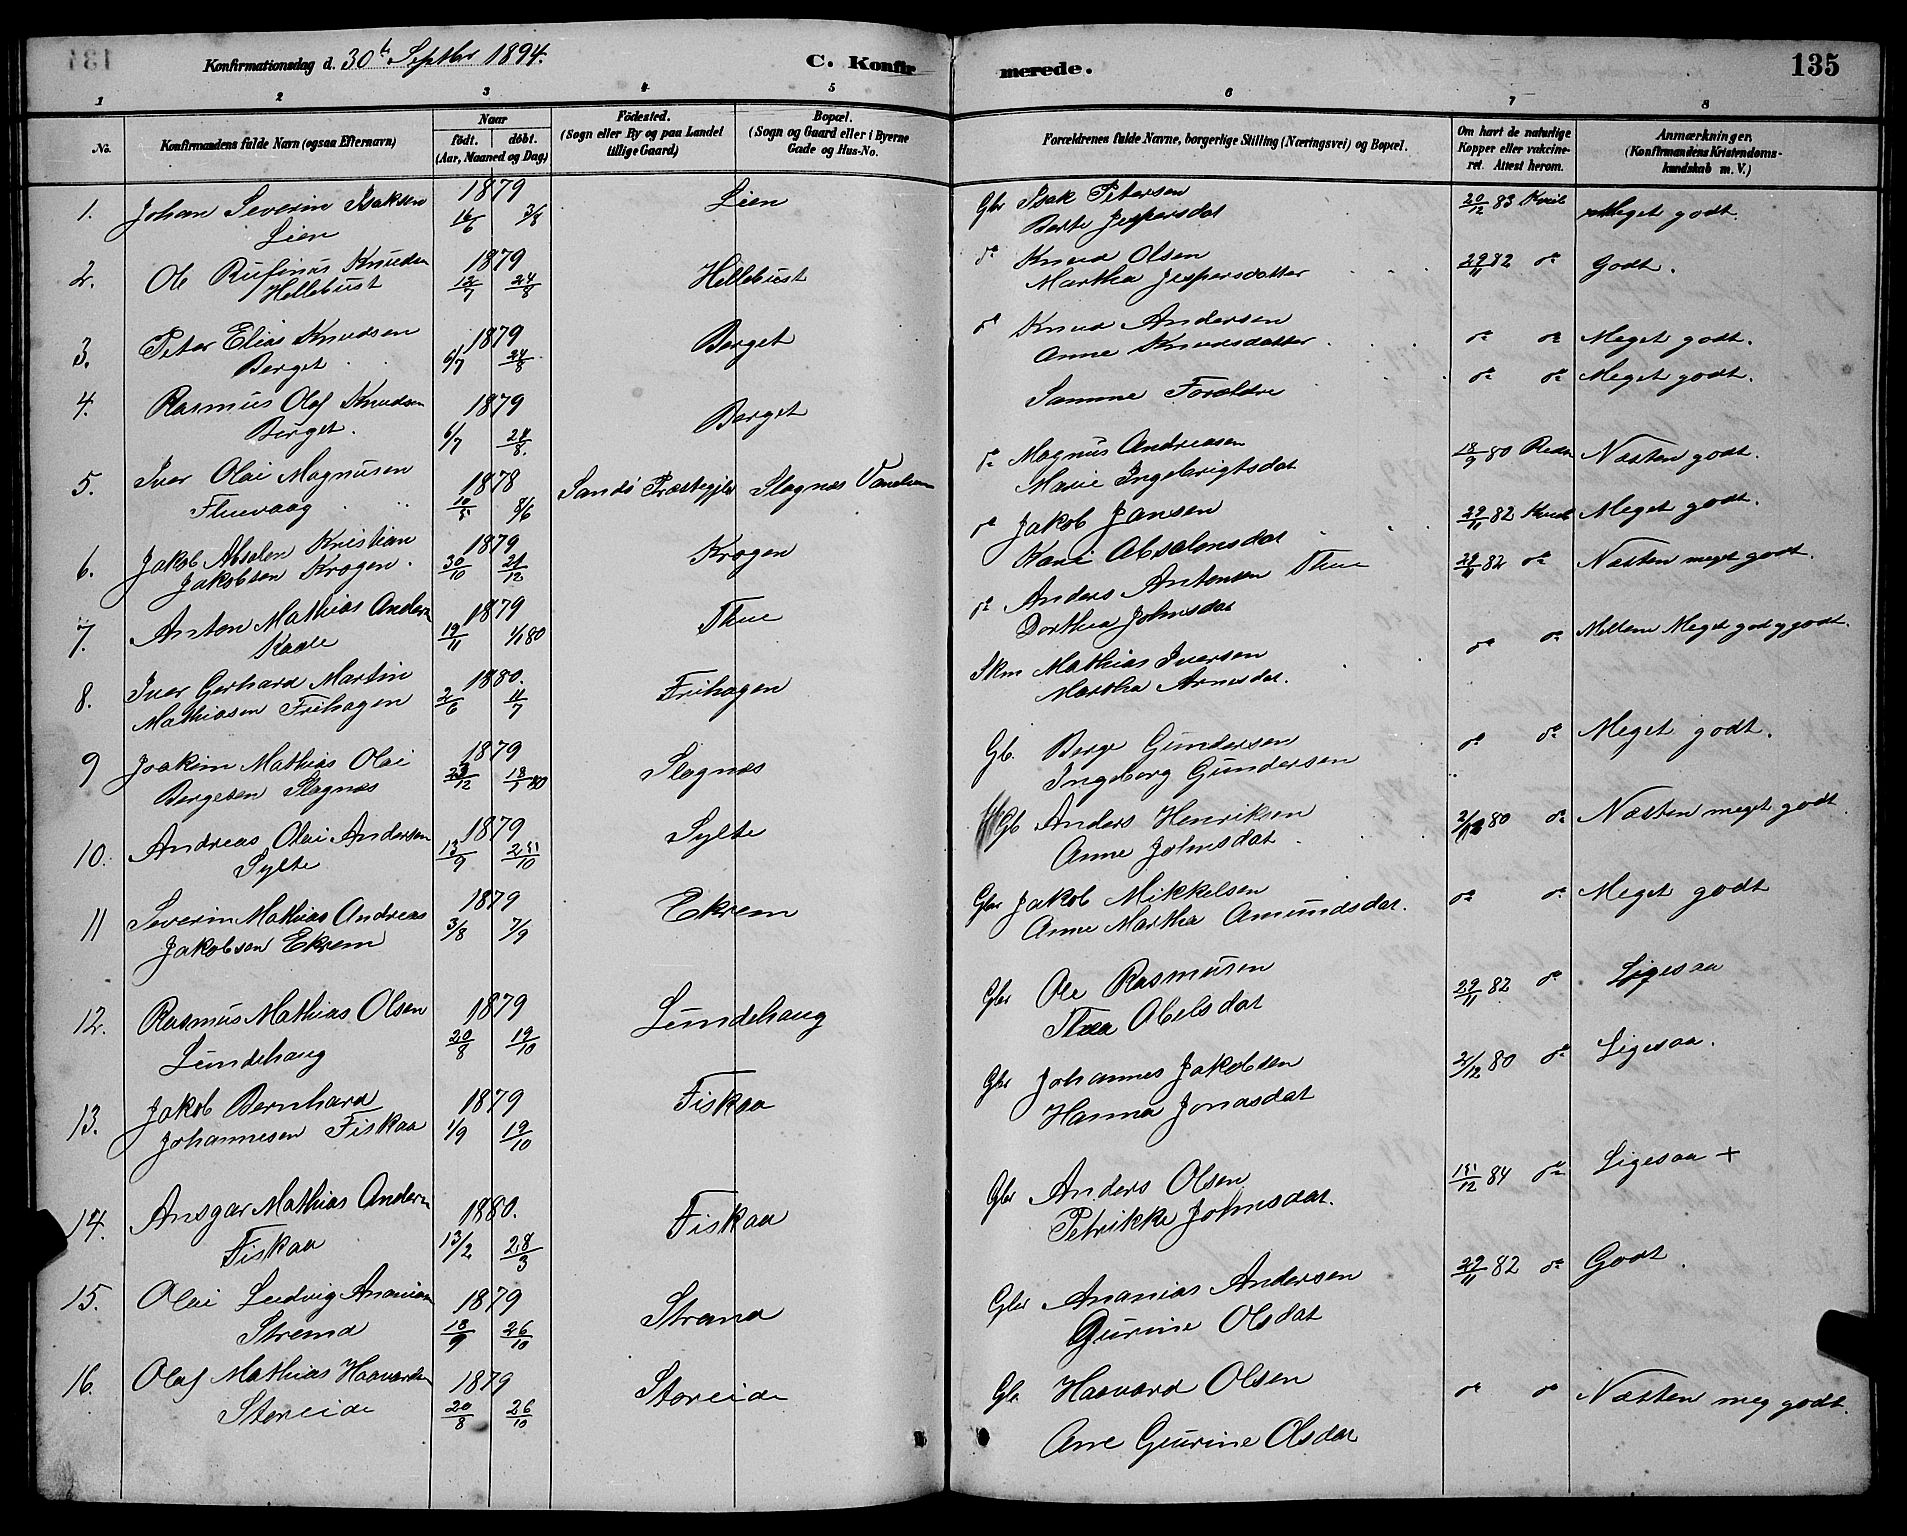 Konfirmationsdag d. 30t Septbr 1894.
C. Konfirmerede.
135
1 2 3 4 5 6 7 8
No.
Konfirmandens fulde Navn (ogsaa Efternavn)
Naar
födt. döbt.
(Aar, Maaned og Dag)
Födested.
(Sogn eller By og paa Landet
tillige Gaard)
Bopæl.
(Sogn og Gaard eller i Byerne
Gade og Hus-No.
Forældrenes fulde Navne, borgerlige Stilling (Næringsvei) og Bopæl.
Om havt de naturlige
Kopper eller vakcine-
ret. Attest herom.
Anmærkninger.
(Konfirmandens Kristendoms-
kundskab m. V.)
1. Johan Severin Isaksen 1879 Lien Gbr Isak Petersen 20/12 83 Meget godt.
Lien 16/6 3/8 Berte Jespersdat
2. Ole Rufinus Knudsen 1879 Hellebust do Knud Olsen 29/11 82 do Godt.
Hellebust 12/7 24/8 Martha Jespersdatter
3. Peter Elias Knudsen 1879 Berget do Knud Andersen do do Meget godt.
Berget 6/7 24/8 Anne Knudsdatter
4. Rasmus Olaf Knudsen 1879 Berget Samme Forældre do do Meget godt.
Berget. 6/7 24/8.
5. Iver Olai Magnusen 1878 Sandö Præstegjld Slagnæs do Magnus Andreasen 18/9 80 Næsten godt.
Fluevaag 8/6 Marie Ingebrigtsdat
6. Jakob Absalon Kristian 1879 Krogen do Jakob Jansen 29/11 82 Meget godt.
Jakobsen Krogen. 30/10 21/12 Absalonsdat
7. Anton Mathias Andersn 1879 Thue do Anders Antonsen Thue 29/11 82 do Næsten meget godt.
19/11 1/1 80 Dorthea Johnsdat
8. Iver Gerhard Martin 1880. Frihagen Mathias Iversen do do Mellem Meget godt og godt.
Mathiasen Frihagen 2/6 11/7 Martha Arnesdat.
9 Joakim Mathias Olai 1879 Slagnæs Gb. Berge Gundersen do do Meget godt.
Bergesen Slagnæs Ingeborg Gundersen
10. Andreas Olai Andersen 1879 Sylte Gb Anders Henriksen 2/12 80 do Næsten meget godt
Sylte 13/9 Anne Johnsdat
11 Severin Mathias Andreas 1879 Ekrem Gbr Jakob Mikkelsen do do Meget godt
Jakobsen Ekrem 3/8 7/9 Anne Martha Amundsdat.
12. Rasmus Mathias Olsen 1879 Lundehaug Gbr Ole Rasmusen 29/11 82 do Ligesaa
Lundehaug 20/8 19/10 Thea Abelsdat
13. Jakob Bernhard 1879 Fiskaa Gbr Johannes Jakobsen 2/12 80 do Ligesaa.
Johannesen Fiskaa 1/9 19/10 Hanna Jonasdat
14. Ansgar Mathias Andersn 1880. Fiskaa Gbr Anders Olsen 84 do Ligesaa +
Fiskaa 13/2 28/3 Petrikke Johnsdat.
15. Olai Ludvig Ananiasn 1879 Strand Gbr Ananias Andersen 29/11 82 do Godt.
Strand 18/9 26/10 Gurine Olsdat
16. Olaf Mathias Haavardsn 1879 Storeide Gbr Haavard Olsen do do Næsten meg godt.
Storeide 20/8 26/10 Ane Gurine Olsdat